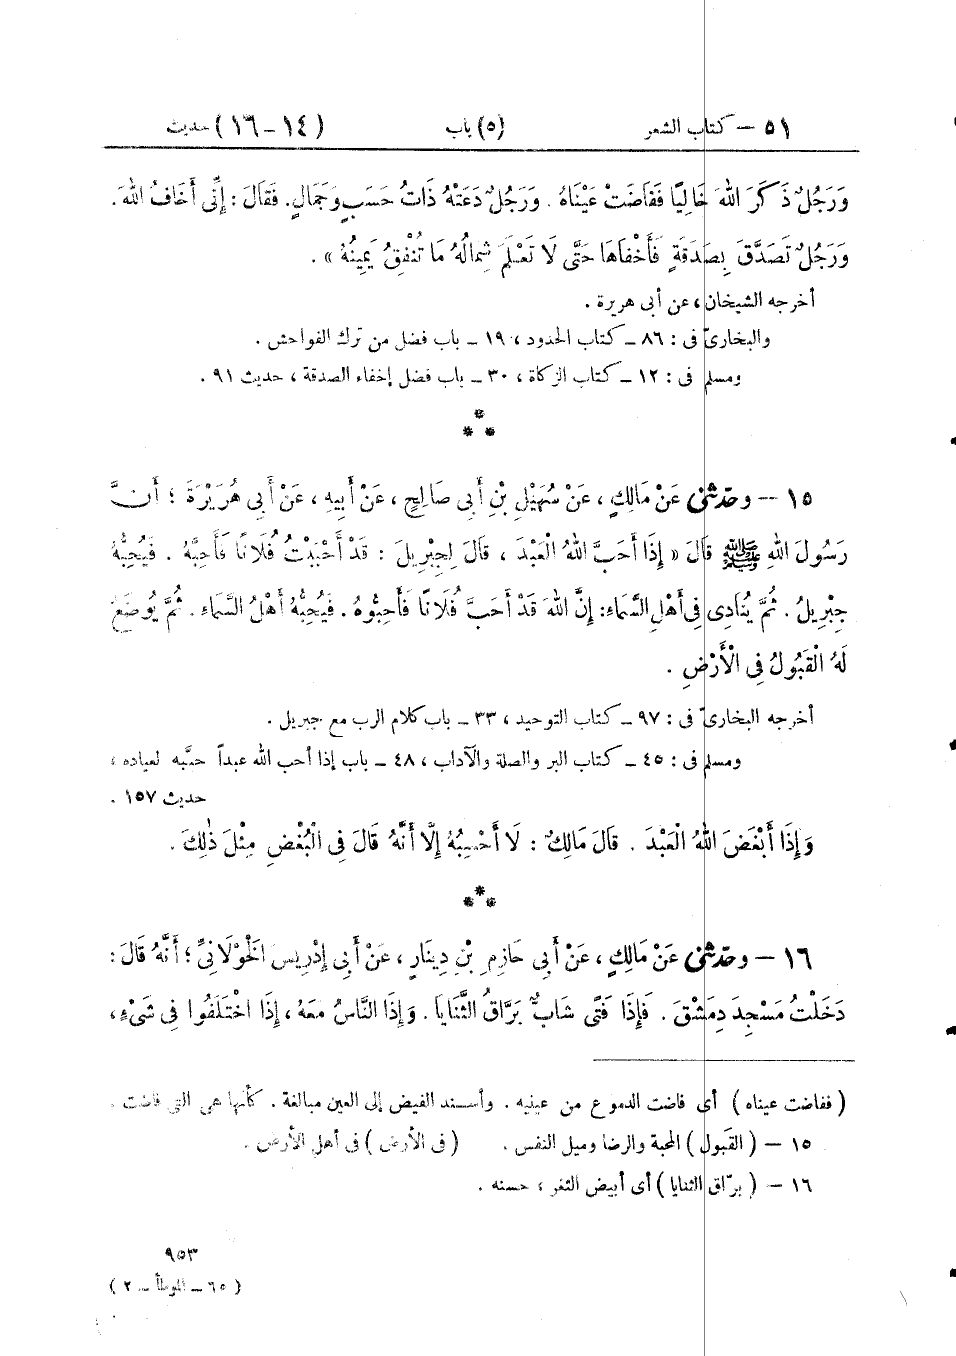 ٥١ – كتاب الشعر (٥) باب (١٤ – ١٦) حديث
وَرَجُلٌ ذَكَرَ اللهَ خَالِيًا فَفَاضَتْ عَيْنَاهُ . وَرَجُلٌ دَعَتْهُ ذَاتُ حَسَبٍ وَجَمَالٍ. فَقَالَ : إِنِّى أَخَافُ اللهَ .
وَرَجُلٌ تَصَدَّقَ بِصَدَقَةٍ فَأَخْفَاهَا حَتَّى لَا تَعْلَمَ شِمَالُهُ مَا تُنْفِقُ يَمِينُهُ » .
أخرجه الشيخان، عن أبى هريرة .
والبخارىّ فى : ٨٦ – كتاب الحدود ، ١٩ – باب فضل من ترك الفواحش .
ومسلم فى : ١٢ – كتاب الزكاة ، ٣٠ – باب فضل إخفاء الصدقة ، حديث ٩١ .
*
* *
١٥ – وحدّثنى عَنْ مَالِكٍ ، عَنْ سُهَيْلِ بْنِ أَبِى صَالِحٍ ، عَنْ أَبِيهِ ، عَنْ أَبِى هُرَيْرَةَ ؛ أَنَّ
رَسُولَ اللهِ ﷺ قَالَ « إِذَا أَحَبَّ اللهُ الْعَبْدَ ، قَالَ لِجِبْرِيلَ : قَدْ أَحْبَبْتُ فُلَانًا فَأَحِبَّهُ . فَيُحِبُّهُ
جِبْرِيلُ . ثُمَّ يُنَادِى فِى أَهْلِ السَّمَاءِ: إِنَّ اللهَ قَدْ أَحَبَّ فُلَانًا فَأَحِبُّوهُ . فَيُحِبُّهُ أَهْلُ السَّمَاءِ . ثُمَّ يُوضَعُ
لَهُ الْقَبُولُ فِى الْأَرْضِ .
أخرجه البخارىّ فى : ٩٧ – كتاب التوحيد ، ٣٣ – باب كلام الرب مع جبريل .
ومسلم فى : ٤٥ – كتاب البر والصلة والآداب ، ٤٨ – باب إذا أحب الله عبداً حبّبه لعباده ،
حديث ١٥٧ .
وَإِذَا أَبْغَضَ اللهُ الْعَبْدَ . قَالَ مَالِكٌ : لَا أَحْسِبُهُ إِلَّا أَنَّهُ قَالَ فِى الْبُغْضِ مِثْلَ ذٰلِكَ .
*
* *
١٦ – وحدّثنى عَنْ مَالِكٍ ، عَنْ أَبِى حَازِمِ بْنِ دِينَارٍ ، عَنْ أَبِى إِدْرِيسَ الْخَوْلَانِىِّ ؛ أَنَّهُ قَالَ :
دَخَلْتُ مَسْجِدَ دِمَشْقَ . فَإِذَا فَتًى شَابٌّ بَرَّاقُ الثَّنَايَا . وَإِذَا النَّاسُ مَعَهُ ، إِذَا اخْتَلَفُوا فِى شَىْءٍ ،
( ففاضت عيناه ) أى فاضت الدموع من عينيه . وأسند الفيض إلى العين مبالغة . كأنها هى التى فاضت .
١٥ – ( القَبول ) المحبة والرضا وميل النفس . ( فى الأرض ) فى أهل الأرض .
١٦ – ( برّاق الثنايا ) أى أبيض الثغر ، حسنه .
٩٥٣
( ٦٥ – الموطأ – ٢ )